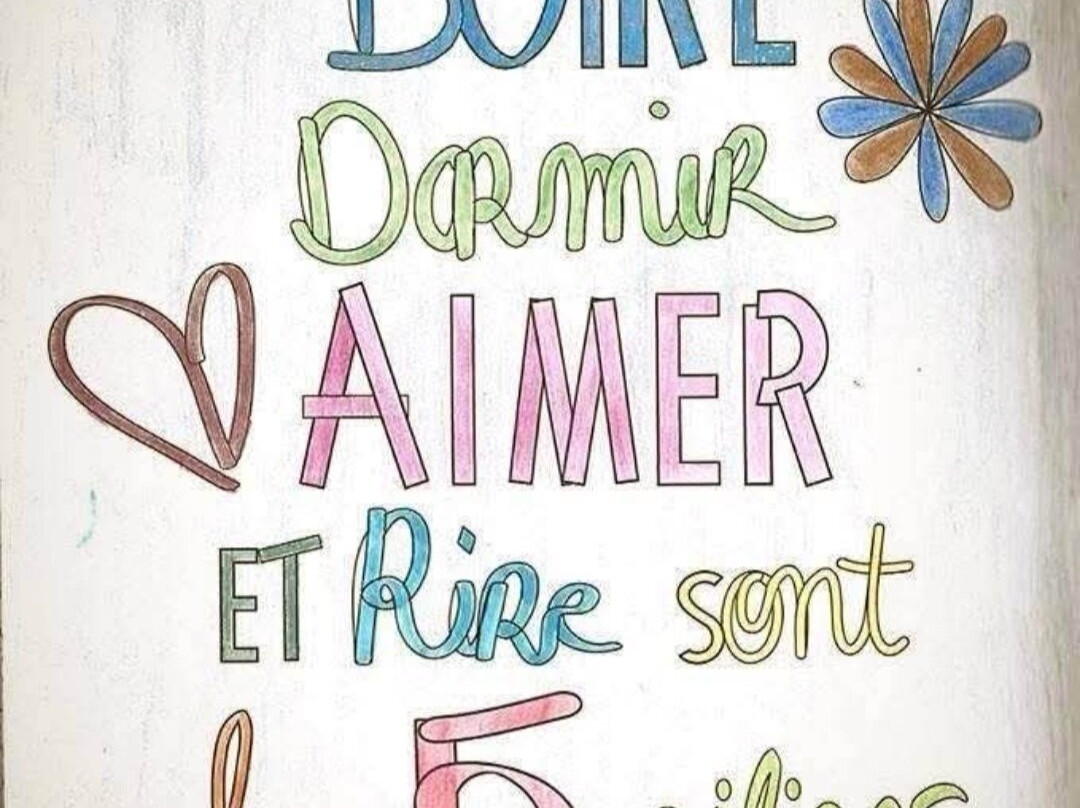 BOIRE
DORMIR
AIMER
ET RIRE sont
5